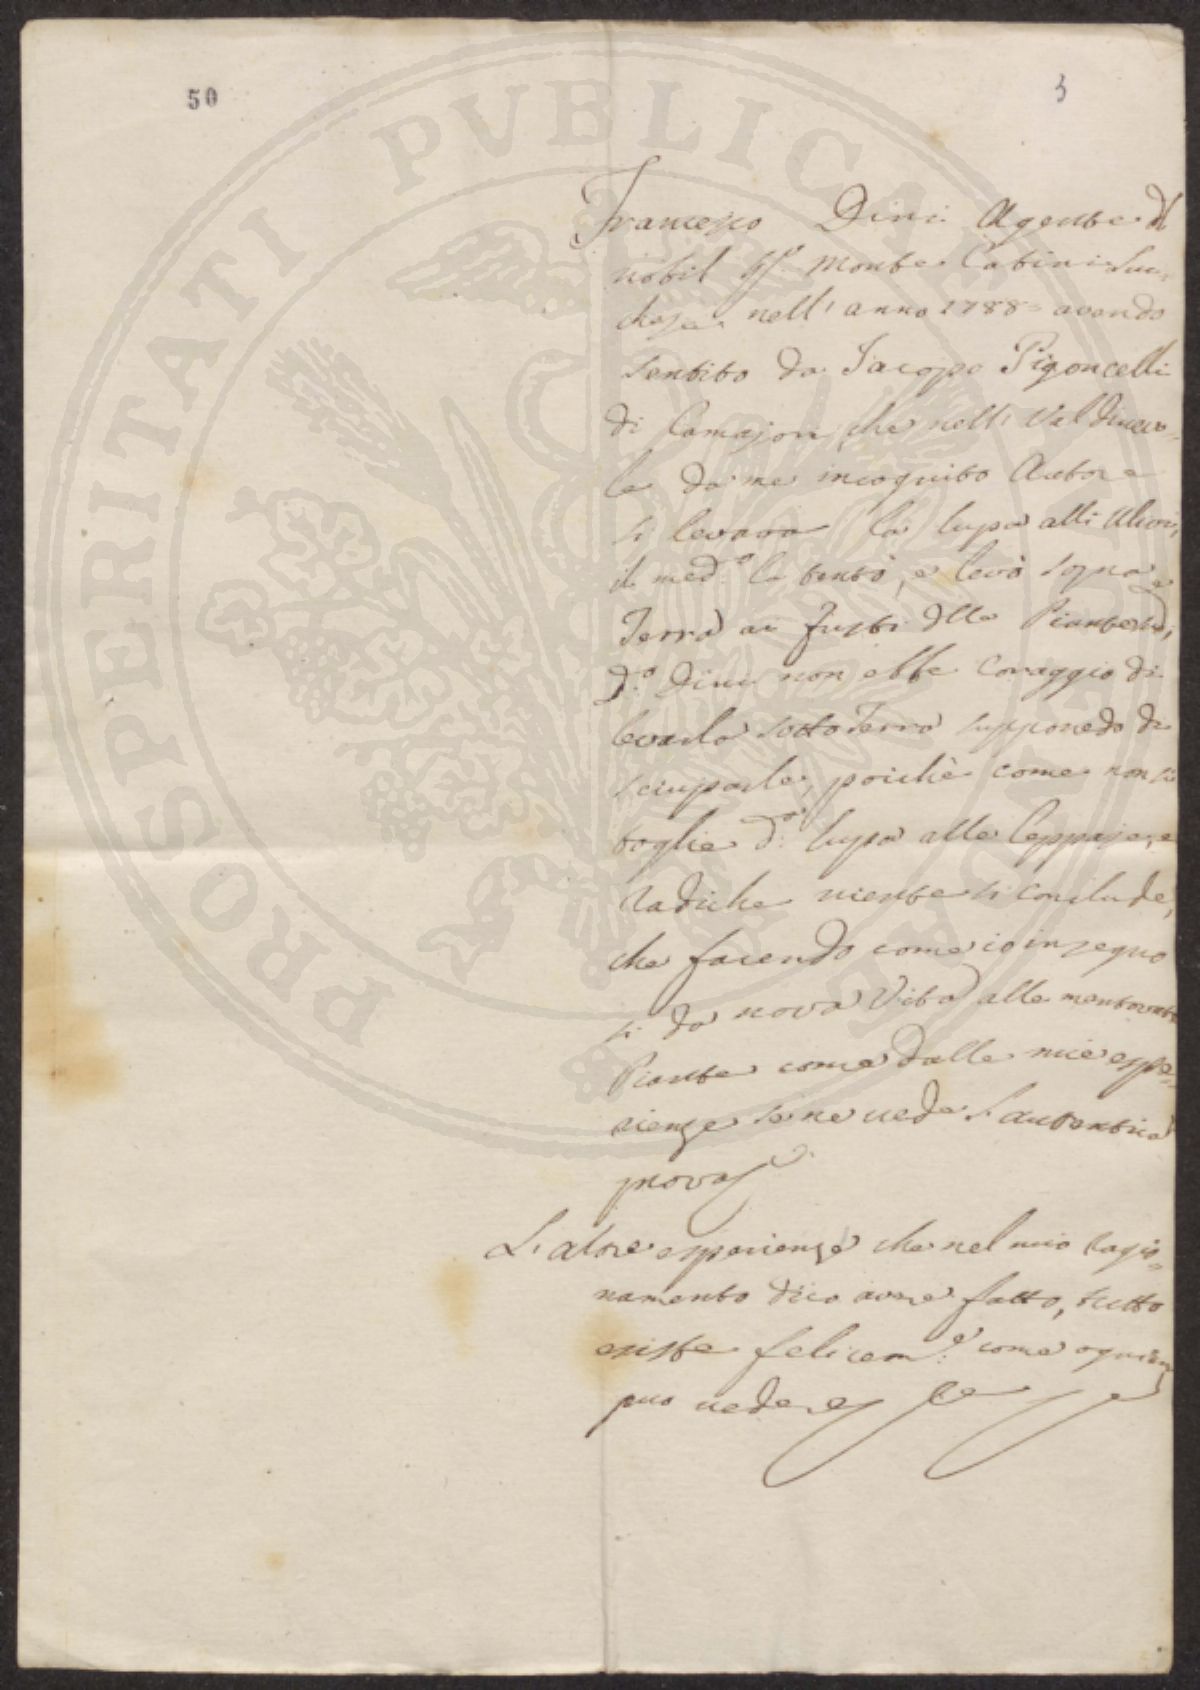 50
3
PROSPERITATI PUBLICAE AUGENDAE
Francesco Dini Agente d
nobil Sig. Monte Catini Luc-
chese nell' anno 1788 = avendo
sentito da Jacopo Pigoncelli
di Camajore, che nell' Valdinievo-
le da me incognito Autore
si levava la lupa alli Ulivi,
il med.o la tentò, e levò sopra
Terra ai fusti dlle Piante, e
d.o Dini non ebbe Coraggio di
levarla sotto Terra supponedo di
sciuparle, poichè come non si
toglie d.a lupa alle Ceppaje, e
Radiche niente si conclude,
che facendo come io insegno
si da nova Vita alle mentovate
Piante come dalle mie espe-
rienze se ne vede l'autentica
prova
L'altre esperienze che nel mio ragio-
namento dico avere fatto, tutto
esiste felicem.e come ognun
puo vedere